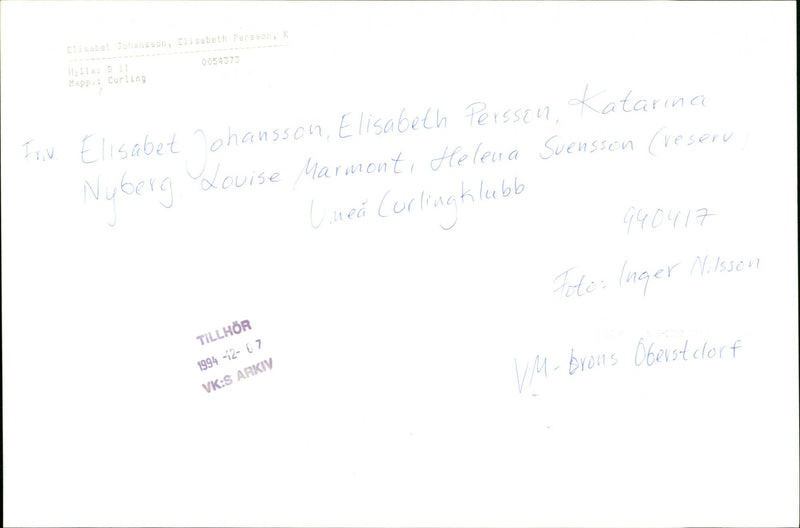 Elisabet Johansson, Elisabeth Persson, K
Hylla: D 11 0054373
Mapp.: Curling
Fr.v. Elisabet Johansson, Elisabeth Persson, Katarina
Nyberg Louise Marmont, Helena Svensson (reserv)
Umeå Curlingklubb
940417
Foto: Inger Nilsson
VM-brons Oberstdorf
TILLHÖR
1994 -12- 07
VK:S ARKIV